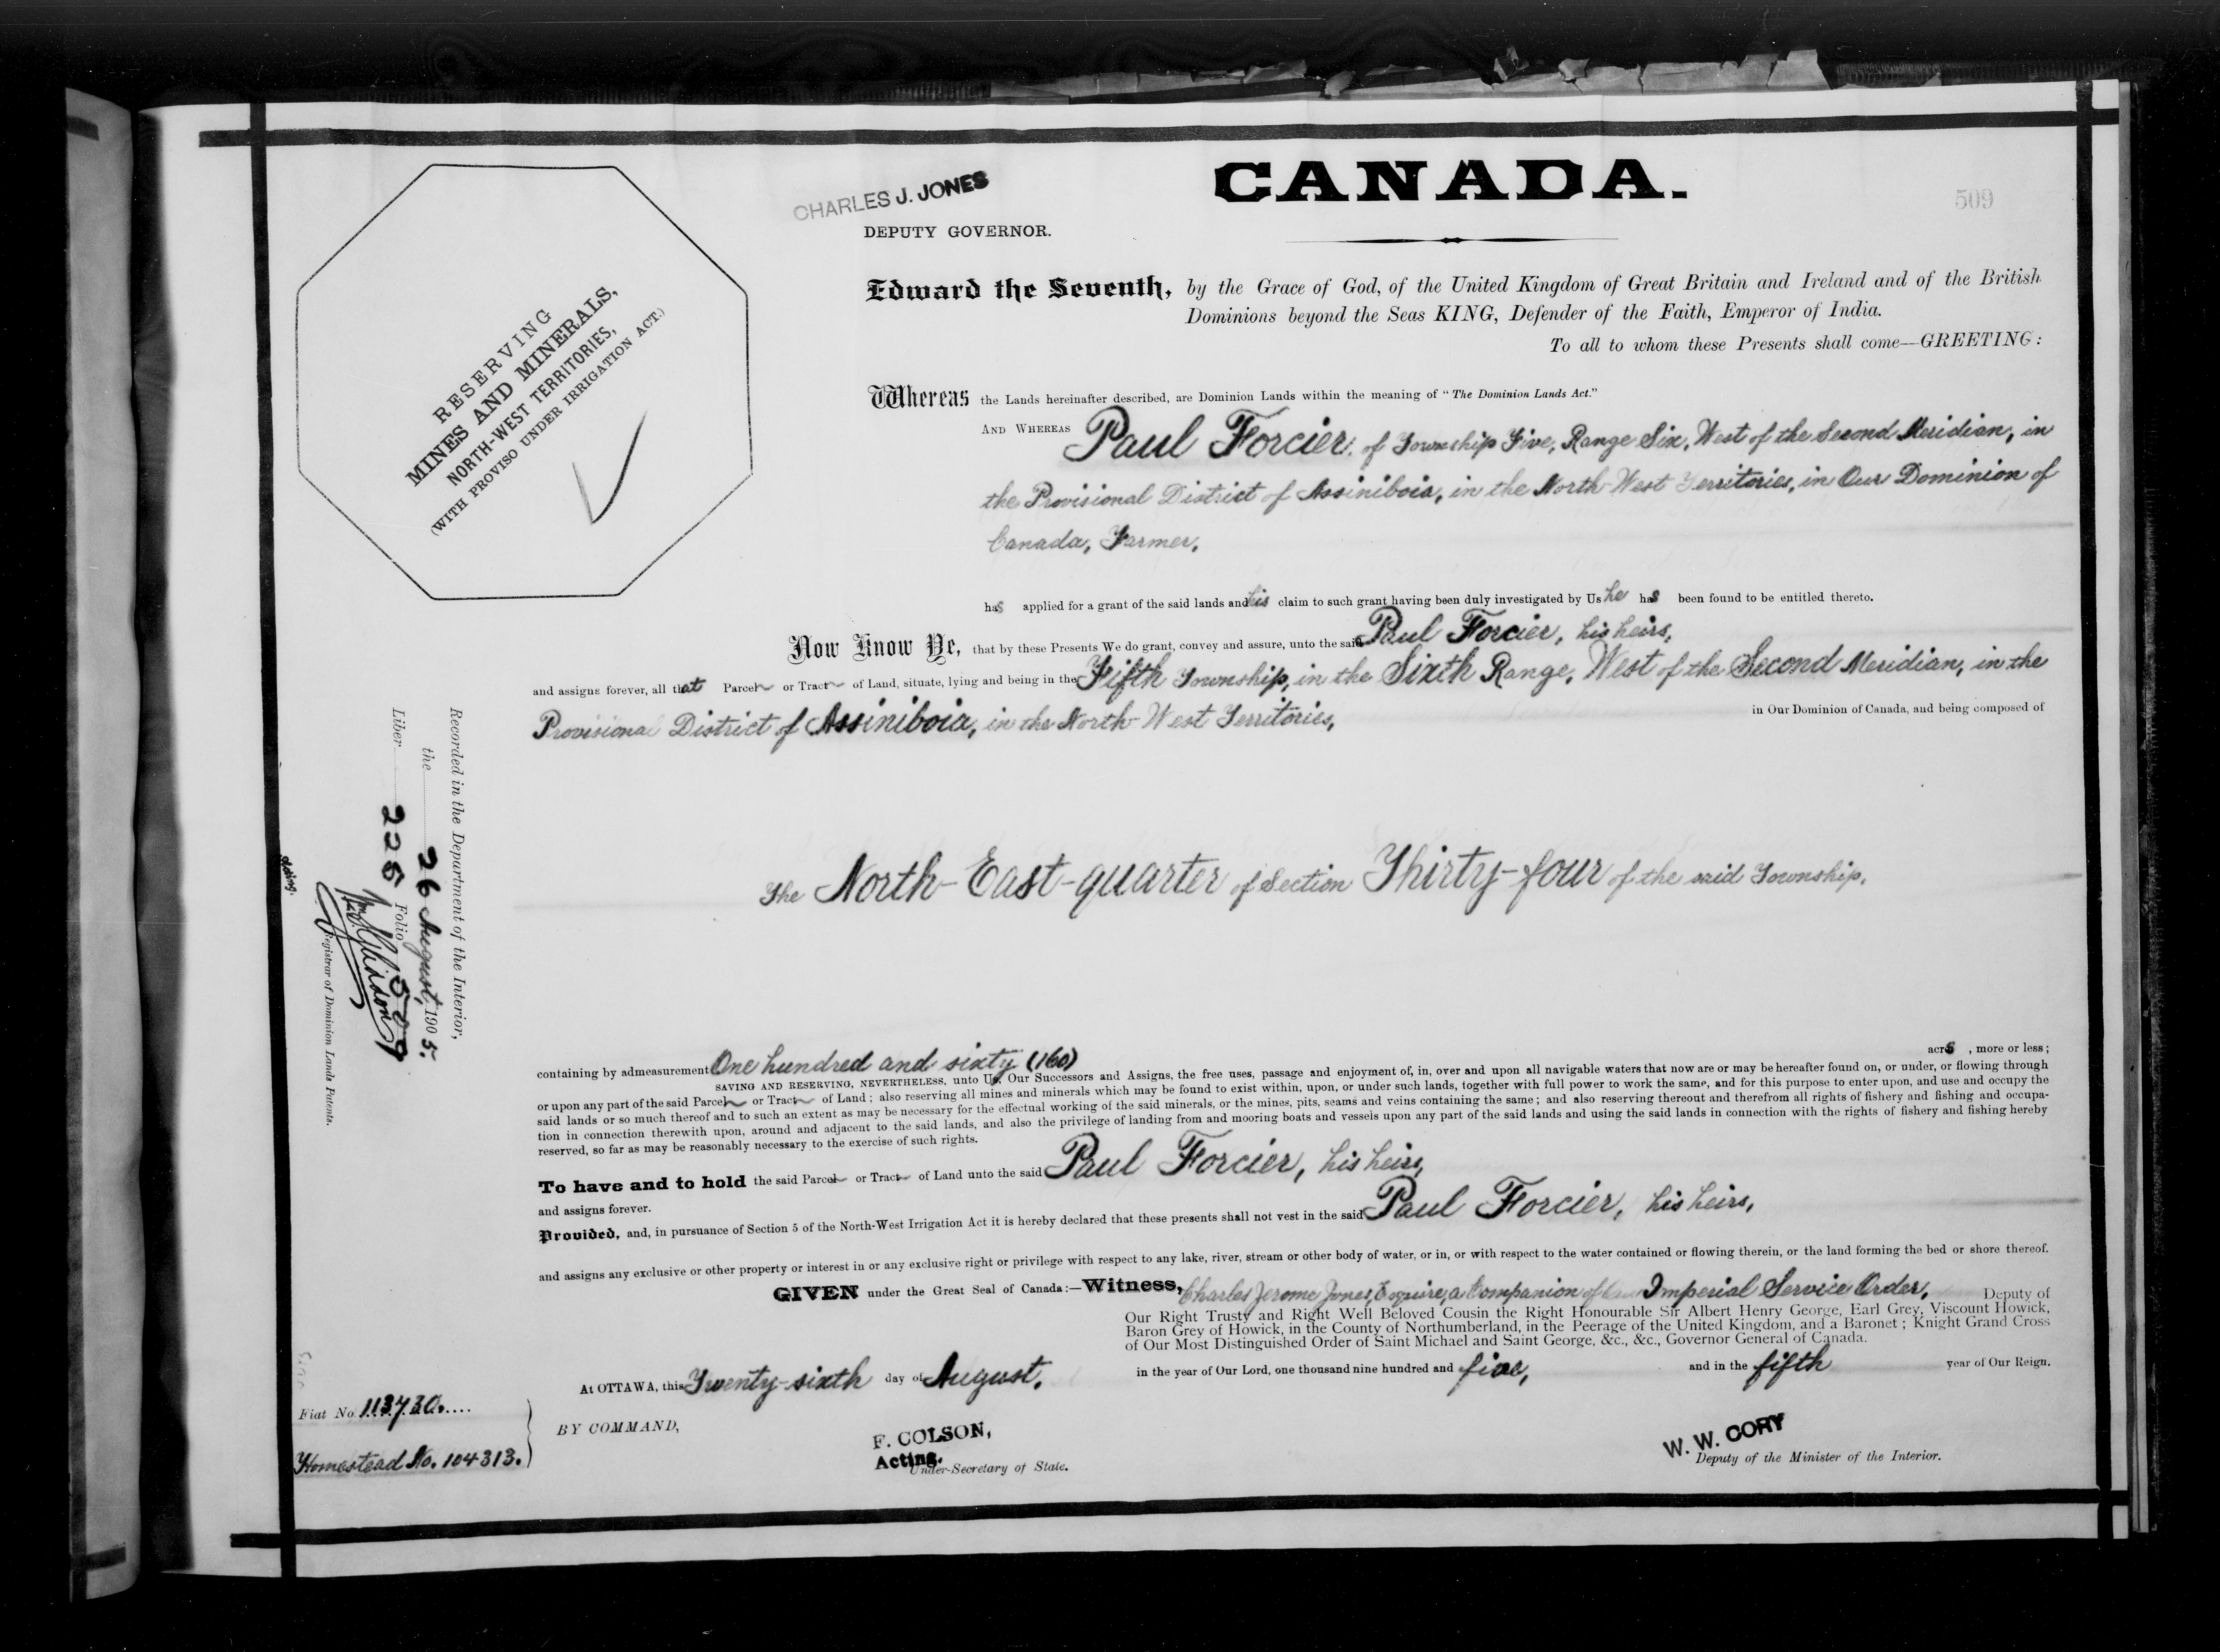 CANADA.
509
CHARLES J. JONES
DEPUTY GOVERNOR.
RESERVING
MINES AND MINERALS,
NORTH-WEST TERRITORIES,
(WITH PROVISO UNDER IRRIGATION ACT.)
Edward the Seventh, by the Grace of God, of the United Kingdom of Great Britain and Ireland and of the British
Dominions beyond the Seas KING, Defender of the Faith, Emperor of India.
To all to whom these Presents shall come—GREETING:
Whereas the Lands hereinafter described, are Dominion Lands within the meaning of "The Dominion Lands Act."
AND WHEREAS Paul Forcier, of Township Five, Range Six, West of the Second Meridian, in
the Provisional District of Assiniboia, in the North-West Territories, in Our Dominion of
Canada, Farmer,
has applied for a grant of the said lands and his claim to such grant having been duly investigated by Us he has been found to be entitled thereto.
Now Know Ye, that by these Presents We do grant, convey and assure, unto the said Paul Forcier, his heirs,
and assigns forever, all that Parcel or Tract of Land, situate, lying and being in the Fifth Township, in the Sixth Range, West of the Second Meridian, in the
Provisional District of Assiniboia, in the North-West Territories, in Our Dominion of Canada, and being composed of
The North-East-quarter of Section Thirty-four of the said Township.
containing by admeasurement One hundred and sixty (160) acres, more or less;
SAVING AND RESERVING, NEVERTHELESS, unto Us, Our Successors and Assigns, the free uses, passage and enjoyment of, in, over and upon all navigable waters that now are or may be hereafter found on, or under, or flowing through
or upon any part of the said Parcel or Tract of Land; also reserving all mines and minerals which may be found to exist within, upon, or under such lands, together with full power to work the same, and for this purpose to enter upon, and use and occupy the
said lands or so much thereof and to such an extent as may be necessary for the effectual working of the said minerals, or the mines, pits, seams and veins containing the same; and also reserving thereout and therefrom all rights of fishery and fishing and occupa-
tion in connection therewith upon, around and adjacent to the said lands, and also the privilege of landing from and mooring boats and vessels upon any part of the said lands and using the said lands in connection with the rights of fishery and fishing hereby
reserved, so far as may be reasonably necessary to the exercise of such rights.
To have and to hold the said Parcel or Tract of Land unto the said Paul Forcier, his heirs,
and assigns forever.
Provided, and, in pursuance of Section 5 of the North-West Irrigation Act it is hereby declared that these presents shall not vest in the said Paul Forcier, his heirs,
and assigns any exclusive or other property or interest in or any exclusive right or privilege with respect to any lake, river, stream or other body of water, or in, or with respect to the water contained or flowing therein, or the land forming the bed or shore thereof.
GIVEN under the Great Seal of Canada:—Witness, Charles Jerome Jones, Esquire, a Companion of Imperial Service Order, Deputy of
Our Right Trusty and Right Well Beloved Cousin the Right Honourable Sir Albert Henry George, Earl Grey, Viscount Howick,
Baron Grey of Howick, in the County of Northumberland, in the Peerage of the United Kingdom, and a Baronet; Knight Grand Cross
of Our Most Distinguished Order of Saint Michael and Saint George, &c., &c., Governor General of Canada.
At OTTAWA, this Twenty-sixth day of August, in the year of Our Lord, one thousand nine hundred and five, and in the fifth year of Our Reign.
BY COMMAND,
F. COLSON,
Acting.
Under-Secretary of State.
W. W. CORY
Deputy of the Minister of the Interior.
Fiat No. 113730.
Homestead No. 104313.
Recorded in the Department of the Interior,
the 26 August, 1905.
Liber 225 Folio 509
Registrar of Dominion Lands Patents.